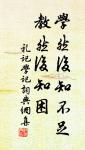 學然後知不足
教然後知困
礼记學記詞典網集